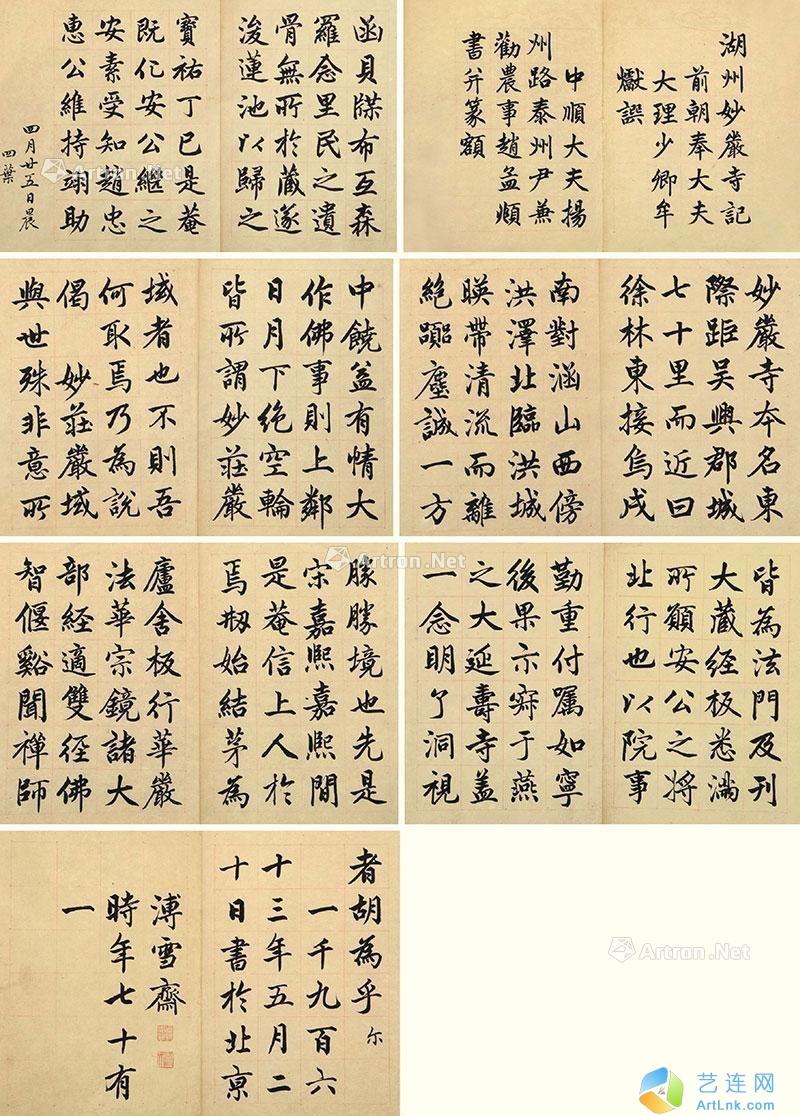 湖州妙嚴寺記
前朝奉大夫
大理少卿牟
巘譔
中順大夫揚
州路泰州尹兼
勸農事趙孟頫
書并篆額
函貝牒布互森
羅念里民之遺
骨無所於藏遂
浚蓮池以歸之
寶祐丁巳是菴
既化安公繼之
安素受知趙忠
惠公維持翊助
四月廿五日晨
四葉
妙嚴寺本名東
際距吳興郡城
七十里而近曰
徐林東接烏戍
南對涵山西傍
洪澤北臨洪城
映帶清流而離
絕囂塵誠一方
中饒益有情大
作佛事則上鄰
日月下絕空輪
皆所謂妙莊嚴
域者也不則吾
何取焉乃為說
偈 妙莊嚴域
與世殊非意所
皆為法門及刊
大藏經板悉滿
所願安公之將
北行也以院事
勤重付囑如寧
後果示寂于燕
之大延壽寺蓋
一念明了洞視
勝境也先是
宋嘉熙嘉熙間
是菴信上人於
焉刱始結茅為
廬舍板行華嚴
法華宗鏡諸大
部經適雙徑佛
智偃谿聞禪師
者胡為乎 尓
一千九百六
十三年五月二
十日書於北京
溥雪齋
時年七十有
一
Artron.Net
Artron.Net
Artron.Net
Artron.Net
艺连网
ArtLnk.Com